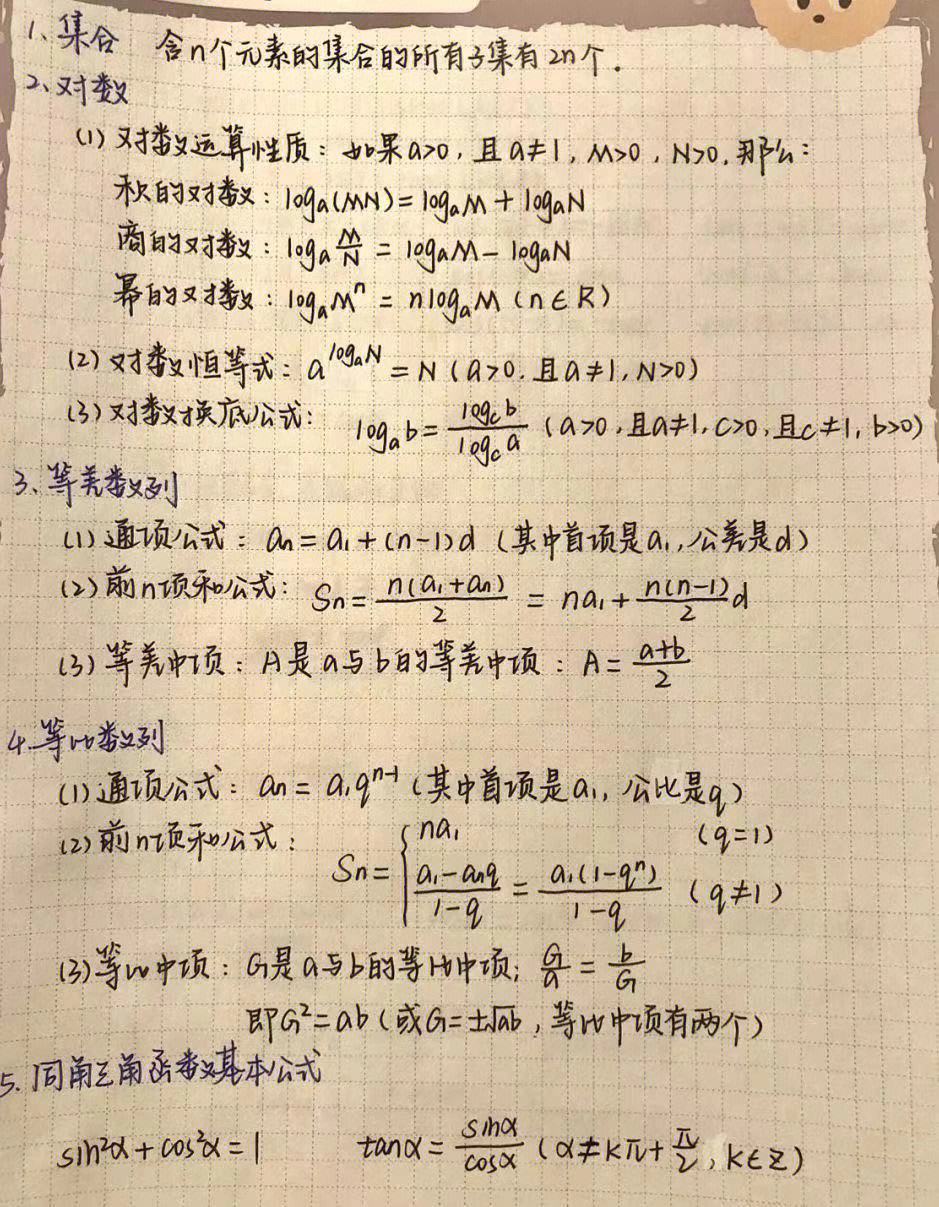 1、集合 含n个元素的集合的所有子集有2n个.
2、对数
(1) 对数运算性质：如果a>0，且a≠1，M>0，N>0，那么：
积的对数：logₐ(MN)=logₐM+logₐN
商的对数：logₐ M/N = logₐM-logₐN
幂的对数：logₐMⁿ = nlogₐM (n∈R)
(2) 对数恒等式：a^(logₐN) = N (a>0.且a≠1,N>0)
(3) 对数换底公式： logₐb = log_c b / log_c a (a>0,且a≠1,c>0,且c≠1,b>0)
3、等差数列
(1) 通项公式：aₙ=a₁+(n-1)d (其中首项是a₁,公差是d)
(2) 前n项和公式：Sₙ= n(a₁+aₙ)/2 = na₁+ n(n-1)/2 d
(3) 等差中项：A是a与b的等差中项：A= (a+b)/2
4.等比数列
(1) 通项公式：aₙ= a₁qⁿ⁻¹ (其中首项是a₁，公比是q)
(2) 前n项和公式： Sₙ= { na₁ (q=1)
(a₁-aₙq)/(1-q) = a₁(1-qⁿ)/(1-q) (q≠1)
(3) 等比中项：G是a与b的等比中项; G/a = b/G
即G²=ab (或G=±√ab，等比中项有两个)
5. 同角三角函数基本公式
sin²α+cos²α=1 tanα= sinα/cosα (α≠kπ+π/2, k∈Z)